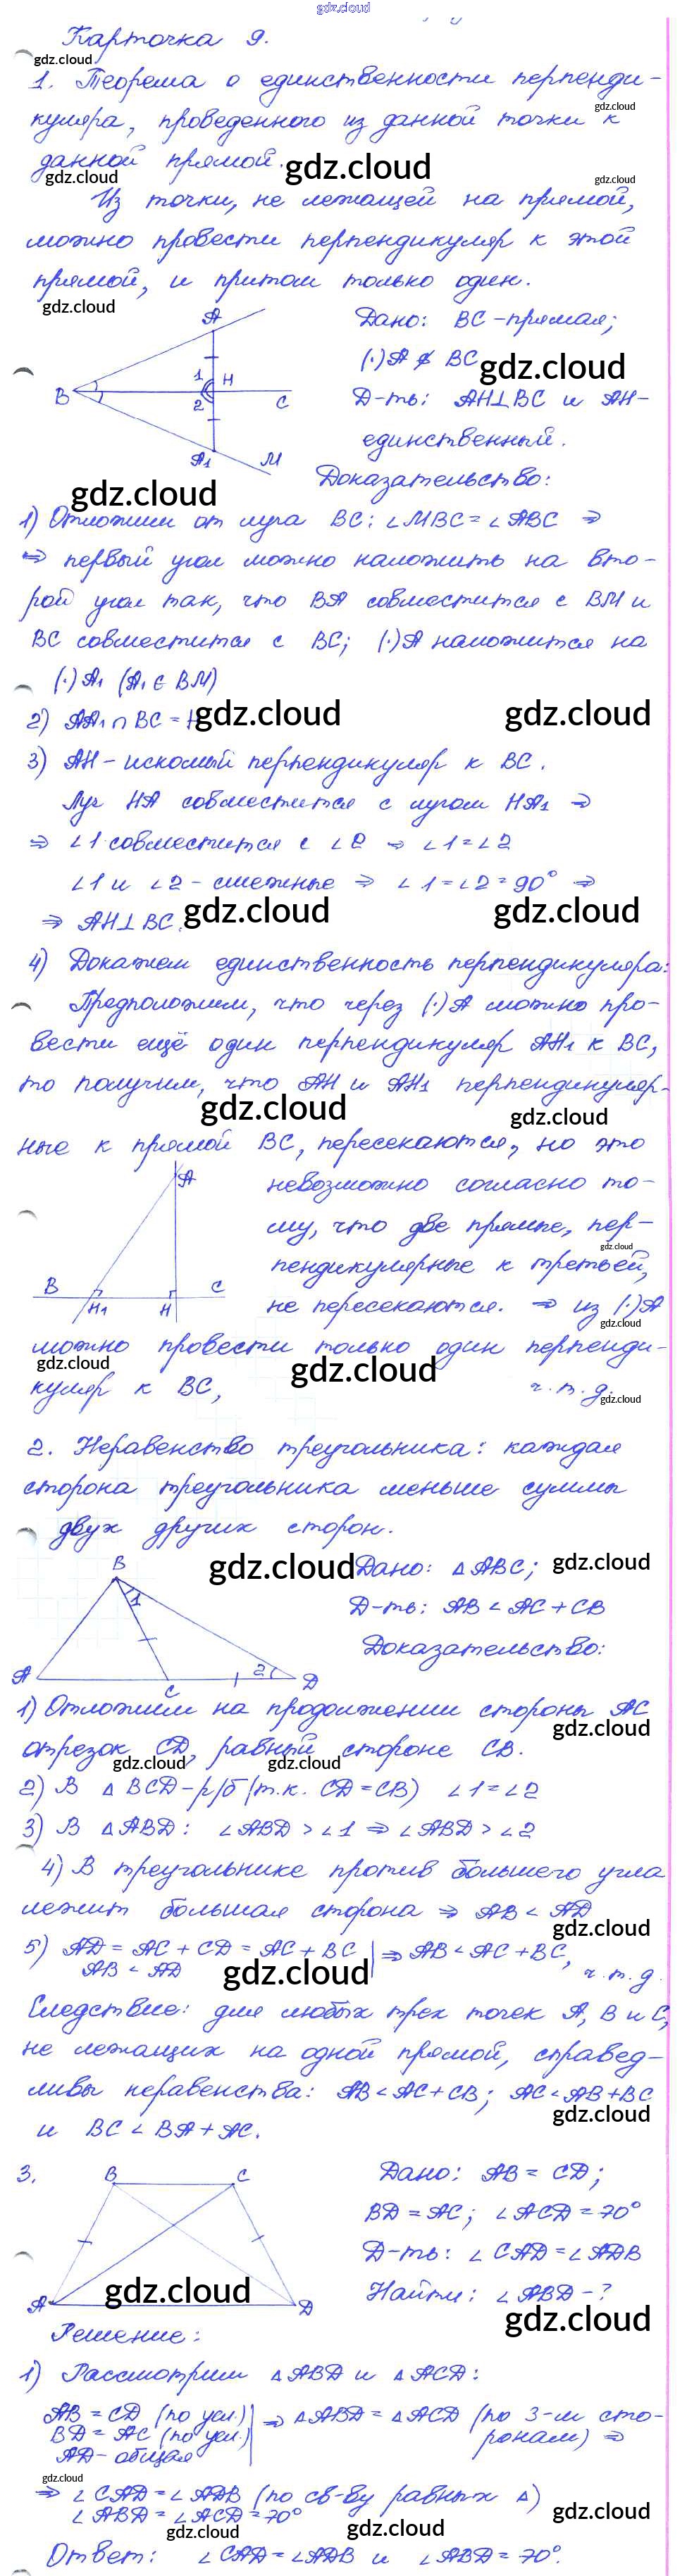 gdz.cloud
Карточка 9.
gdz.cloud
1. Теорема о единственности перпенди-
gdz.cloud
куляра, проведенного из данной точки к
данной прямой.
gdz.cloud gdz.cloud gdz.cloud
Из точки, не лежащей на прямой,
можно провести перпендикуляр к этой
прямой, и притом только один.
gdz.cloud
A
B
1
H
2
C
A₁
M
Дано: BC - прямая;
(·)A ∉ BC
gdz.cloud
Д-ть: AH⊥BC и AH-
единственный.
Доказательство:
gdz.cloud
1) Отложим от луча BC: ∠MBC = ∠ABC ⇒
⇒ первый угол можно наложить на вто-
рой угол так, что BA совместится с BM и
BC совместится с BC; (·)A наложится на
(·)A₁ (A₁ ∈ BM)
2) AA₁ ∩ BC = H
gdz.cloud gdz.cloud
3) AH - искомый перпендикуляр к BC.
Луч HA совместится с лучом HA₁ ⇒
⇒ ∠1 совместится с ∠2 ⇒ ∠1 = ∠2
∠1 и ∠2 - смежные ⇒ ∠1 = ∠2 = 90° ⇒
⇒ AH⊥BC.
gdz.cloud gdz.cloud
4) Докажем единственность перпендикуляра:
Предположим, что через (·)A можно про-
вести ещё один перпендикуляр AH₁ к BC,
то получим, что AH и AH₁ перпендикуляр-
gdz.cloud gdz.cloud
ные к прямой BC, пересекаются, но это
A
B
C
H₁
H
невозможно согласно то-
му, что две прямые, пер-
gdz.cloud
пендикулярные к третьей,
не пересекаются. ⇒ из (·)A
gdz.cloud
можно провести только один перпенди-
gdz.cloud gdz.cloud
куляр к BC, ч.т.д.
gdz.cloud
2. Неравенство треугольника: каждая
сторона треугольника меньше суммы
двух других сторон.
B
1
A
C
2
D
gdz.cloud
Дано: △ABC;
gdz.cloud
Д-ть: AB < AC + CB
Доказательство:
1) Отложим на продолжении стороны AC
gdz.cloud
отрезок CD, равный стороне CB.
gdz.cloud gdz.cloud
2) В △BCD - р/б (т.к. CD = CB) ∠1 = ∠2
3) В △ABD: ∠ABD > ∠1 ⇒ ∠ABD > ∠2
4) В треугольнике против большего угла
лежит большая сторона ⇒ AB < AD
gdz.cloud
5) AD = AC + CD = AC + BC | ⇒ AB < AC + BC,
AB < AD ч.т.д.
gdz.cloud
Следствие: для любых трех точек A, B и C,
не лежащих на одной прямой, справед-
ливы неравенства: AB < AC + CB; AC < AB + BC
gdz.cloud
и BC < BA + AC.
3.
B
C
A
D
gdz.cloud
Дано: AB = CD;
BD = AC; ∠ACD = 70°
Д-ть: ∠CAD = ∠ADB
Найти: ∠ABD - ?
gdz.cloud
Решение:
1) Рассмотрим △ABD и △ACD:
AB = CD (по усл.) | ⇒ △ABD = △ACD (по 3-м сто-
BD = AC (по усл.) ронам) ⇒
AD - общая
gdz.cloud
⇒ ∠CAD = ∠ADB (по св-ву равных △)
∠ABD = ∠ACD = 70°
gdz.cloud gdz.cloud gdz.cloud
Ответ: ∠CAD = ∠ADB и ∠ABD = 70°.